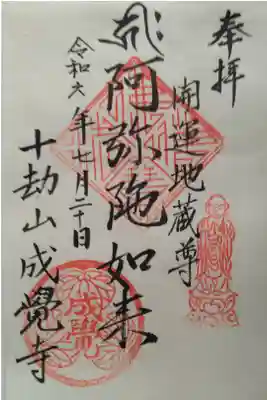 奉拝
開運地蔵尊
阿弥陀如来
令和六年七月二十日
十劫山成覺寺
成覺寺